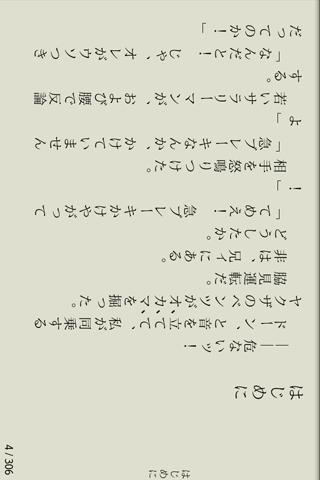 はじめに
はじめに
――危ないッ!
ドーン、と音を立てて、私が同乗する
ヤクザのベンツがオカマを掘った。
脇見運転だ。
非は、兄ィにある。
どうしたか。
「てめえ! 急ブレーキかけやがって
!」
相手を怒鳴りつけた。
「急ブレーキなんか、かけていません
よ」
若いサラリーマンが、および腰で反論
する。
「なんだと! じゃ、オレがウソつき
だってのか!」
4 / 306